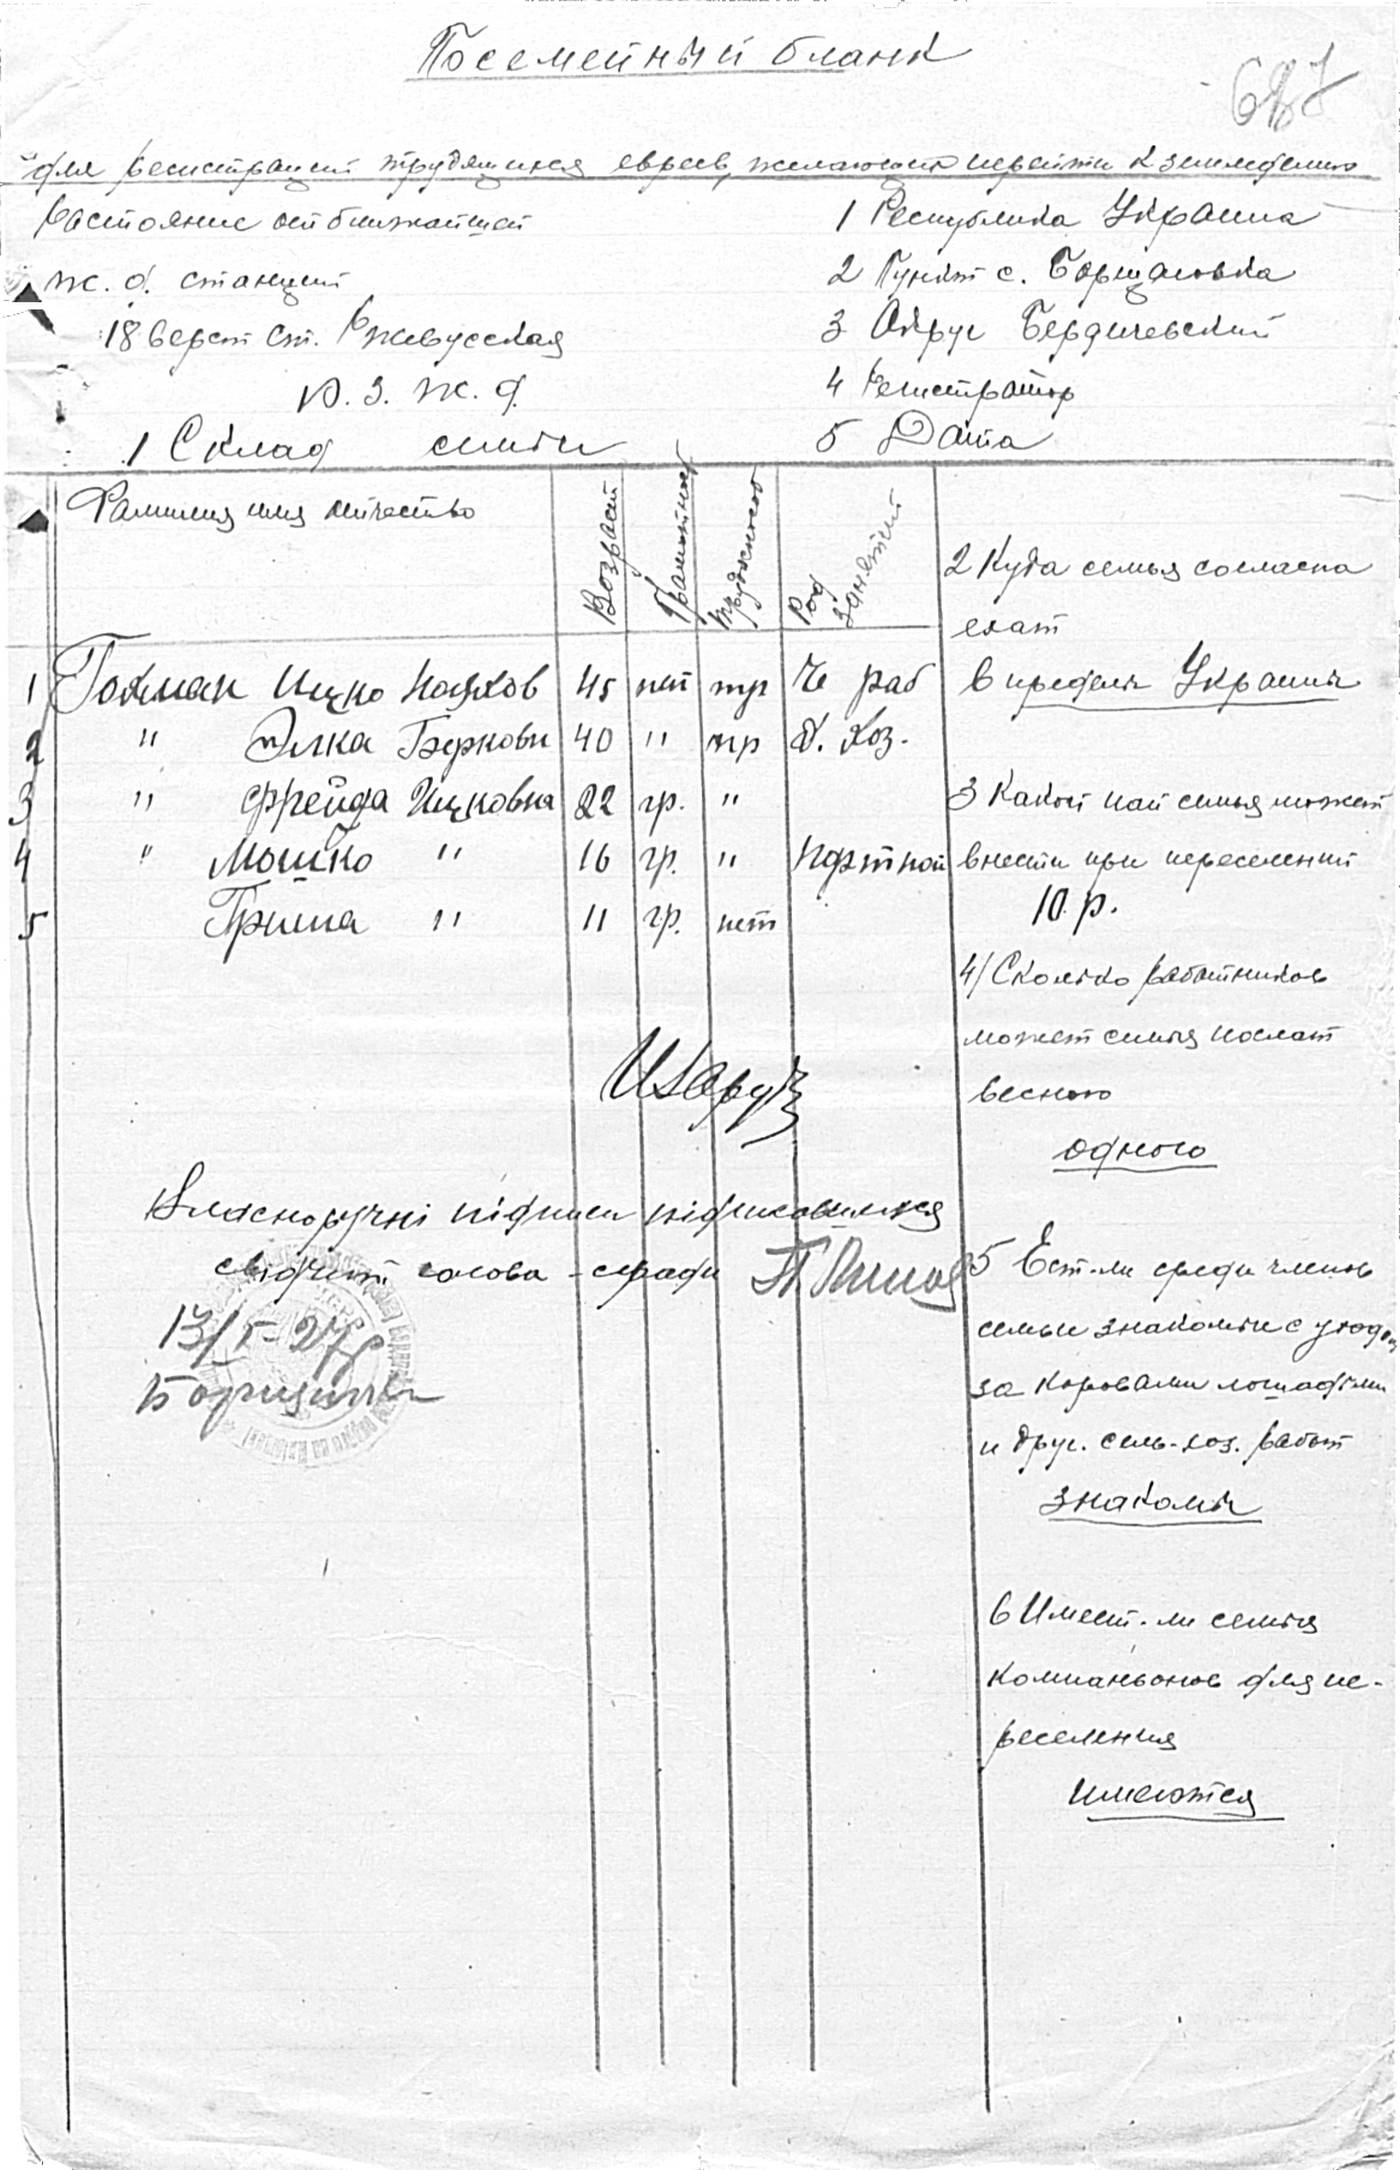 Посемейный бланк
687
для регистраций трудящихся евреев, желающих перейти к земледелию
Растояние от ближайшей
ж. д. станций
18 верст ст. Ржевусская
Ю. З. ж. д.
1 Республика Украина
2 Пункт с. Борщаговка
3 Округ Бердичевский
4 Регистратор
5 Дата
1 Склад семьи
Фамилия имя отчество
Возраст
Грамотност
Трудоспособ
Род занятий
1 Гохман Ицко 45 нет тр Ч раб
2 " Элка Берковн 40 " тр д. хоз.
3 " Фрейда Ицковна 22 гр. "
4 " Мошко " 16 гр. " портной
5 Гриша " 11 гр. нет
2 Куда семья согласна
ехат
в предели Украини
3 Какой пай семья может
внести при переселений
10 р.
4/ Сколько работников
может семья послат
весною
одного
5 Ест-ли среди членов
семьи знакомы с уходом
за коровами лошадьми
и друг. сель-хоз. работ
знакомы
6 Имеет-ли семья
компаньонов для пе-
реселения
имеются
Власноручні підписи підписавшихся
свідчить голова с-ради
13/I-27р